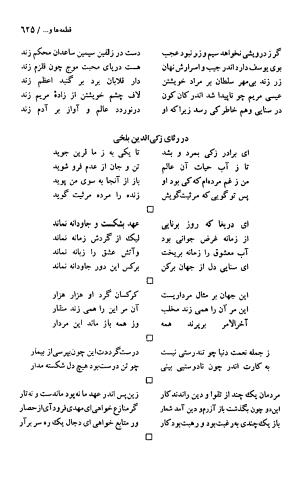 قطعه‌ها و... / ۶۲۵
گر ز درویشی نخواهد سیم و زر نبود عجب دست در زلفین سیمین ساعدان محکم زند
بوی یوسف دارد اندر جیب و اسرارش نهان دم ز دریاهای محبت موج چون قلزم زند
زر زند بی‌مهر سلطان بر مراد خویشتن دار قلابان برد بر گنبد اعظم زند
عیسی مریم چو ناپیدا شد اندر کان کون لاف چشم خویشتن از زادهٔ مریم زند
در سنایی وهم خاطر کی رسد زیرا که او درنوردد عالم و آواز بر آدم زند
در رثای زکی‌الدین بلخی
ای برادر زکی بمرد و بشد تا یکی به ز ما قرین جوید
تا ز آب حیات آن عالم تن و جان از عدم فرو شوید
من ز غم مرده‌ام که کی بود او باز از آنجا به سوی من پوید
پس تو گویی که مرثیت‌گویش مرده را مرده مرثیت گوید
ای دریغا که روز برنایی عهد بشکست و جاودانه نماند
از زمانه غرض جوانی بود لیک از گردش زمانه نماند
آب معشوق را زمانه بریخت وآتش عشق را زبانه نماند
ای سنایی دل از جهان برکن برکس این دور جاودانه نماند
این جهان بر مثال مرداریست کرکسان گرد او هزار هزار
این مر آن را همی زند مخلب آن مر این را همی زند منقار
آخرالامر برپرند همه وز همه باز ماند این مردار
ز جمله نعمت دنیا چو تندرستی نیست درست گرددت این چون بپرسی از بیمار
به کارت اندر چون نادرستیی بینی چو تن درست بود هیچ دل شکسته مدار
مردمان یک چند از تقوا و دین راندند کار زین پس اندر عهد ما نه پود ماندست و نه تار
این دو چون بگذشت باز آزرم و دین آمد شعار گر منازع خواهی ای مهدی فرود آی از حصار
باز یک چندی به رغبت بود و رهبت بود کار ور متابع خواهی ای دجال یک ره سر برآر